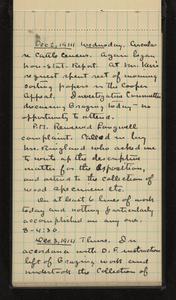 Dec 2, 1914 Wednesday. Circular
re Cattle Census. Again began
non-stat. Report. At Mr. Kerr's
request spent rest of morning
sorting papers in the Cooper
Appeal. Investigative Committee
discussing Grazing today - no
opportunity to attend.
P.M. Received Rangwell
complaint. Called in by
Mr. Ringland who asked me
to write up the descriptive
matter for the Exposition,
and attend to the collection of
wood specimens etc.
On at least 6 lines of work
today and nothing particularly
accomplished on any one.
8-4:30.
Dec 3, 1914 Thurs. In
accordance with D.F. instructions
left off Grazing work and
undertook the Collection of